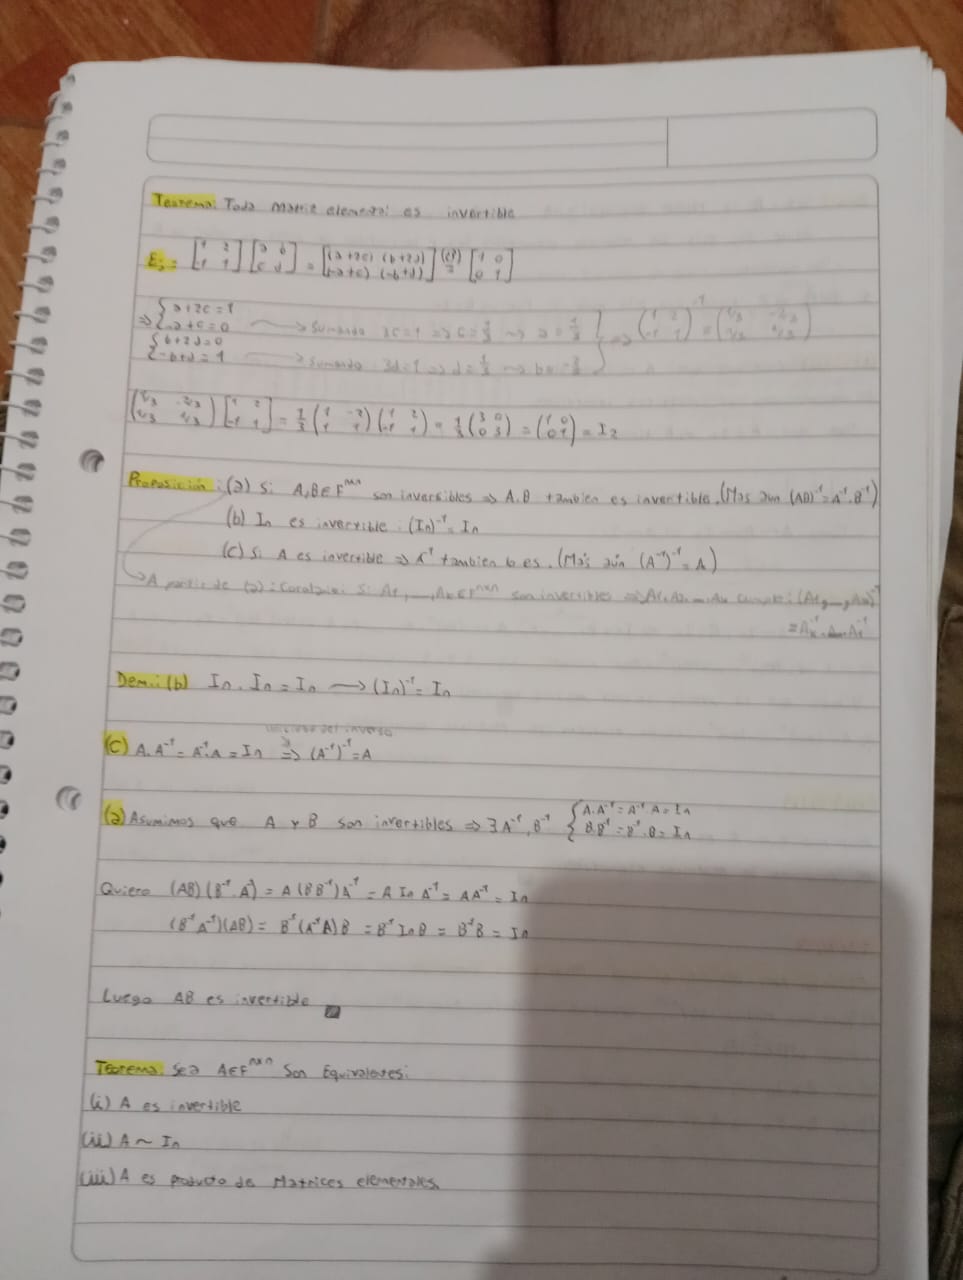 Teorema: Toda Matriz elemental es invertible
Ej: [1 2; -1 1] [a b; c d] = [(a+2c) (b+2d); (-a+c) (-b+d)] (¿?) = [1 0; 0 1]
⇒ {a+2c=1; -a+c=0 → Sumando 3c=1 ⇒ c=1/3 → a=1/3 } ⇒ (1 2; -1 1)⁻¹ = (1/3 -2/3; 1/3 1/3)
{b+2d=0; -b+d=1 → Sumando 3d=1 ⇒ d=1/3 → b=-2/3
(1/3 -2/3; 1/3 1/3) [1 2; -1 1] = 1/3 (1 -2; 1 1) (1 2; -1 1) = 1/3 (3 0; 0 3) = (1 0; 0 1) = I₂
Proposición: (a) Si A,B∈Fⁿˣⁿ son inversibles ⇒ A.B tambien es invertible. (Mas aun (AB)⁻¹=A⁻¹.B⁻¹)
(b) In es invertible: (In)⁻¹= In
(c) Si A es invertible ⇒ A⁻¹ tambien lo es. (Más aún (A⁻¹)⁻¹=A)
A partir de (a): Si A₁, son invertibles ⇒
Dem.: (b) In . In = In → (In)⁻¹= In
unicidad del inverso
(C) A.A⁻¹ = A⁻¹.A = In ⇒ (A⁻¹)⁻¹=A
(a) Asumimos que A y B son invertibles ⇒ ∃ A⁻¹, B⁻¹ {A.A⁻¹ = A⁻¹.A = In; B.B⁻¹ = B⁻¹.B = In
Quiero (AB)(B⁻¹.A⁻¹) = A(BB⁻¹)A⁻¹ = A In A⁻¹ = AA⁻¹ = In
(B⁻¹A⁻¹)(AB) = B⁻¹(A⁻¹A)B = B⁻¹InB = B⁻¹B = In
Luego AB es invertible
Teorema: Sea A∈Fⁿˣⁿ Son Equivalentes:
(i) A es invertible
(ii) A ~ In
(iii) A es Producto de Matrices elementales.